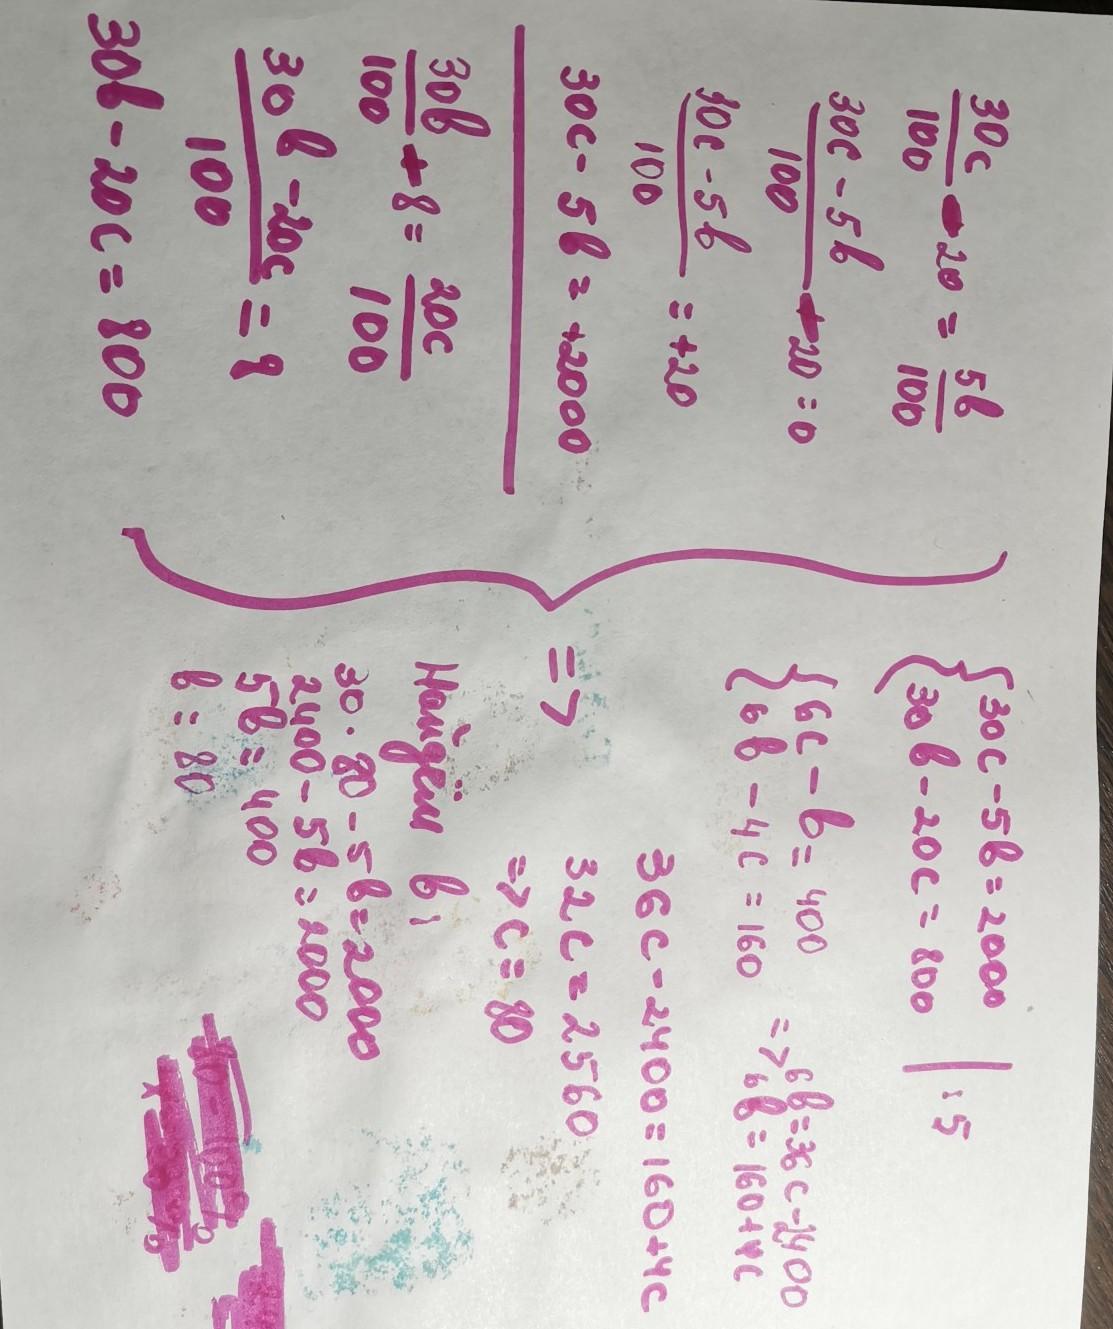 30c/100 - 20 = 5b/100
30c - 5b/100 - 20 = 0
30c - 5b/100 = +20
30c - 5b = +2000
30b/100 - 8 = 20c/100
30b - 20c/100 = 8
30b - 20c = 800
=>
{30c - 5b = 2000
{30b - 20c = 800 | :5
{6c - b = 400
{6b - 4c = 160
=> 6b = 36c - 2400
6b = 160 + 4c
36c - 2400 = 160 + 4c
32c = 2560
=> c = 80
Найдём b:
30 · 80 - 5b = 2000
2400 - 5b = 2000
5b = 400
b = 80